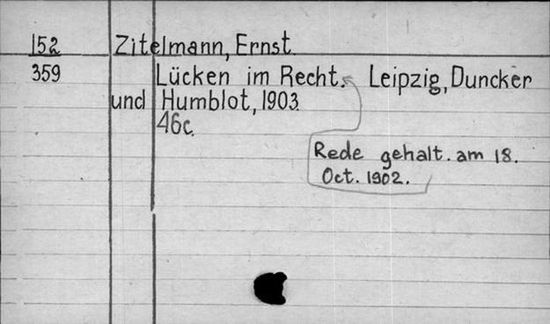 152 Zitelmann, Ernst.
359 Lücken im Recht. Leipzig, Duncker
und Humblot, 1903.
46c.
Rede gehalt. am 18.
Oct. 1902.